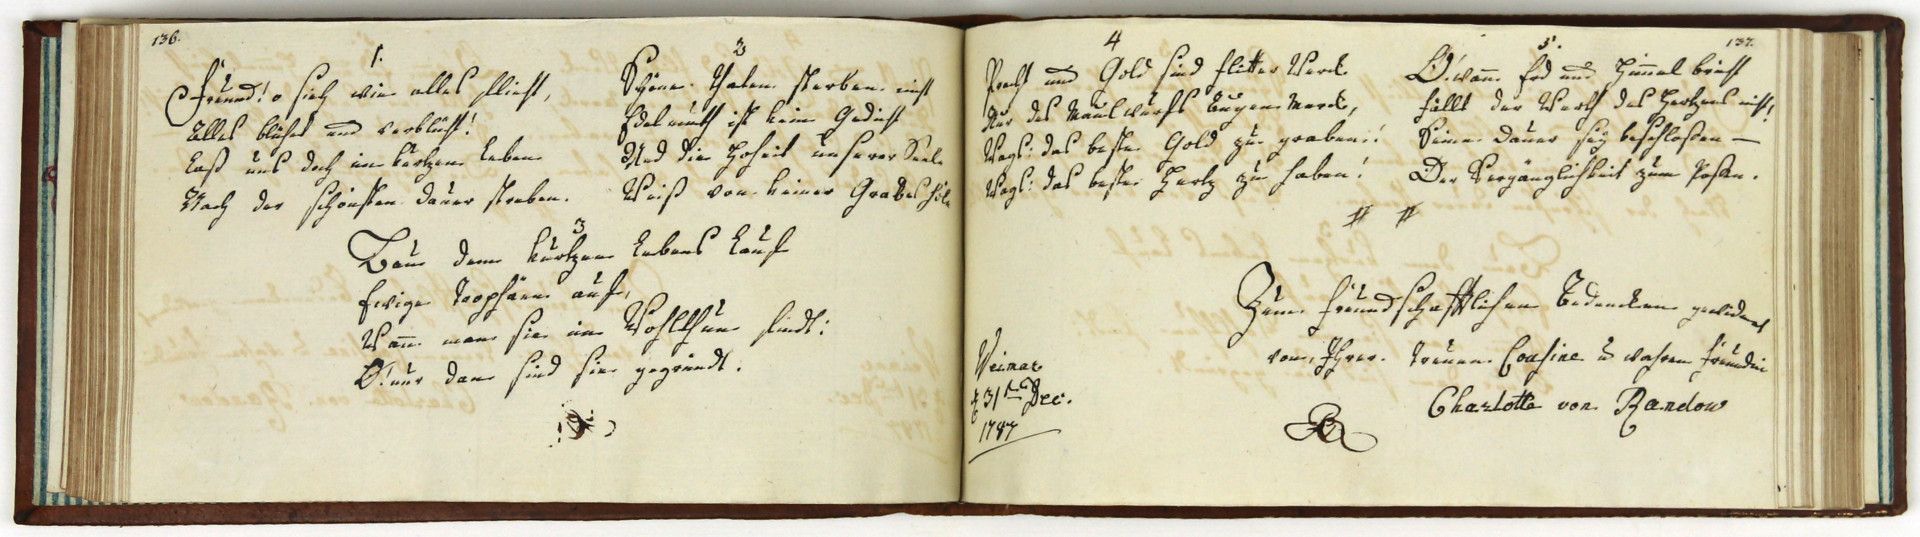 136.
1.
Freund! o sieh wie alles flieht,
Alles blühet und verblüht!
Laß uns doch im kurtzen Leben
Nach der schönsten Dauer streben.
2
Schöne Thaten sterben nicht
Edelmuth ist kein Gedicht
Und die Hoheit unserer Seele
Weiß von keiner Grabes höle
3
Bau dem kurtzen Lebens Lauf
Ewige Trophäen auf,
Wann man sie im Wohlthun findt:
O! nur dan sind sie gegründt.
4
Pracht und Gold sind flitter Werck
Nur des Maulwurfs Augen Merck,
Wags: das beste Gold zu graben!
Wags: das beste Hertz zu haben!
137.
5.
O! wann Erd und Himmel bricht
fällt der Werth des Hertzens nicht!
Seine Dauer sey beschloßen —
Der Vergänglichkeit zum
Zum freundschafftlichen Andencken gewidmet
von Ihrer treuen Cousine u wahren Freundin
Charlotte von Randow
Weimar
31ten Dec.
1787